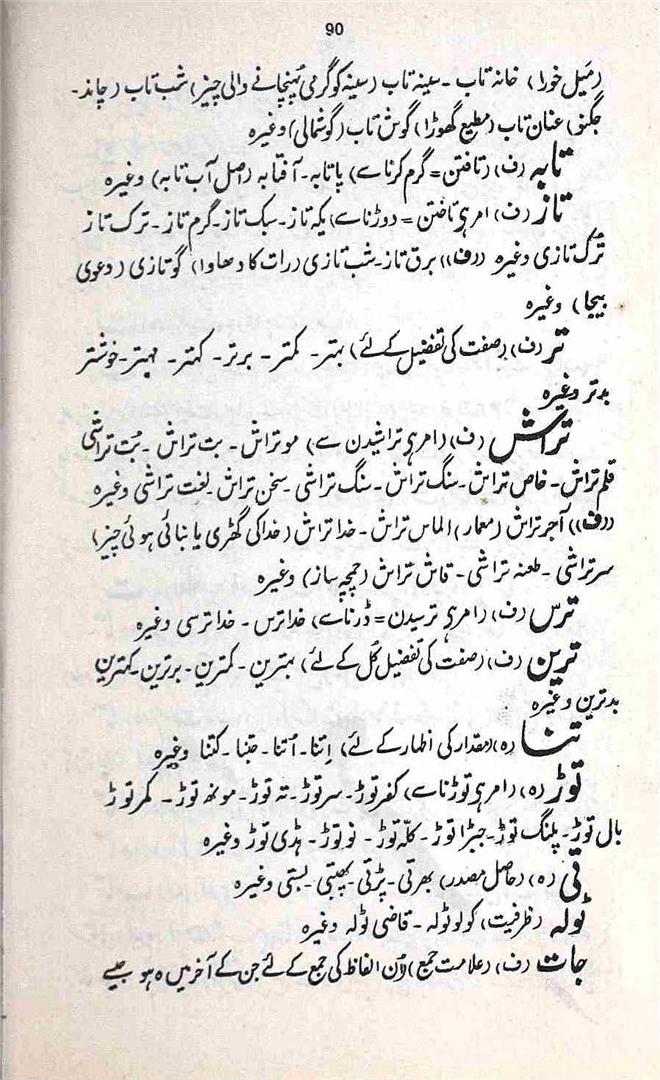 90
(میل خورا) خانہ تاب - سینہ تاب (سینہ کو گرمی پہنچانے والی چیز) شب تاب (چاند -
جگنو) عنان تاب (مطیع گھوڑا) گوش تاب (گوشمالی) وغیرہ
تابہ (ف) (تافتن = گرم کرنا سے) پاتابہ - آفتابہ (اصل آب تابہ) وغیرہ
تاز (ف) امر ہے تاختن = دوڑنا سے) یکہ تاز - سبک تاز - گرم تاز - ترک تاز
ترک تازی وغیرہ ((ف)) برق تاز - شب تازی (رات کا دھاوا) گو تازی (دعوی
بیجا) وغیرہ
تر (ف) (صفت کی تفضیل کے لئے) بہتر - کمتر - برتر - کہتر - مہتر - خوشتر
بدتر وغیرہ
تراش (ف) (امر ہے تراشیدن سے) مو تراش - بت تراش - بُت تراشی
قلم تراش - خاص تراش - سنگ تراش - سنگ تراشی - سخن تراش - لغت تراشی وغیرہ
((ف)) آجر تراش (معمار) الماس تراش - خدا تراش (خدا کی گھڑی یا بنائی ہوئی چیز)
سر تراشی - طعنہ تراشی - قاش تراش (چمچہ ساز) وغیرہ
ترس (ف) (امر ہے ترسیدن = ڈرنا سے) خدا ترس - خدا ترسی وغیرہ
ترین (ف) (صفت کی تفضیل کُل کے لئے) بہترین - کمترین - برترین - کہترین
بدترین وغیرہ
تنا (ہ) (مقدار کی اظہار کے لئے) اِتنا - اُتنا - جتنا - کتنا وغیرہ
توڑ (ہ) (امر ہے توڑنا سے) کفر توڑ - سر توڑ - تہ توڑ - مونھ توڑ - کمر توڑ
بال توڑ - پلنگ توڑ - جبڑا توڑ - کلہ توڑ - نو توڑ - ہڈی توڑ وغیرہ
تی (ہ) (حاصل مصدر) بھرتی - پڑتی - پھبتی - بستی وغیرہ
ٹولہ (ظرفیت) کولو ٹولہ - قاضی ٹولہ وغیرہ
جات (ف) (علامت جمع) (اُن الفاظ کی جمع کے لئے جن کے آخر میں ہ ہو جیسے